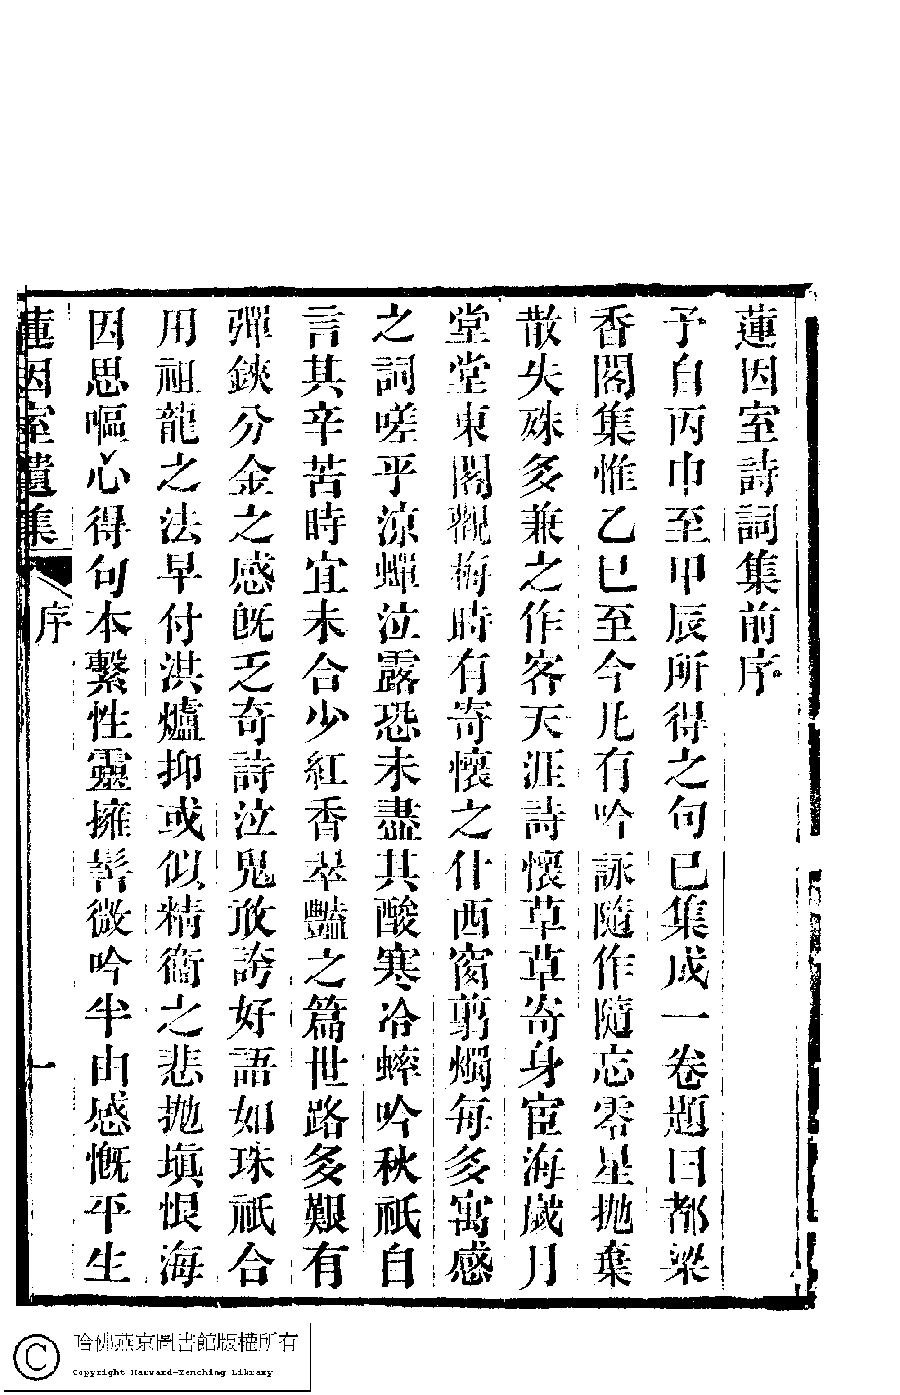 蓮因室詩詞集前序
予自丙申至甲辰所得之句已集成一卷題曰都梁
香閣集惟乙巳至今凡有吟詠隨作隨忘零星拋棄
散失殊多兼之作客天涯詩懷草草寄身宦海歲月
堂堂東閣觀梅時有寄懷之什西窗剪燭每多寓感
之詞嗟乎涼蟬泣露恐未盡其酸寒冷蟀吟秋祇自
言其辛苦時宜未合少紅香翠豔之篇世路多艱有
彈鋏分金之感旣乏奇詩泣鬼敢誇好語如珠祇合
用祖龍之法早付洪爐抑或似精衞之悲拋塡恨海
因思嘔心得句本繫性靈擁髻微吟半由感慨平生
蓮因室遺集 序 一
哈佛燕京圖書館版權所有
Copyright Harvard-Yenching Library